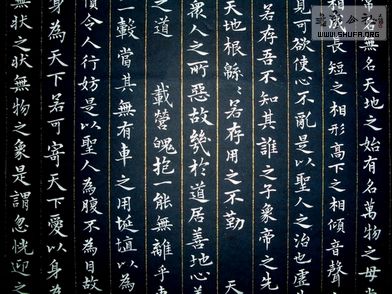 常名無名天地之始有名萬物之母常
相成長短之相形高下之相傾音聲
見可欲使心不亂是以聖人之治也虛
若存吾不知其誰之子象帝之先
天地根緜〻若存用之不勤　天
衆人之所惡故幾於道居善地心善
之道　載營魄抱一能無離乎專
一轂當其無有車之用埏埴以為
貨令人行妨是以聖人為腹不為目故
身為天下若可寄天下愛以身為
無狀之狀無物之象是謂忽恍迎之
WWW.SHUFA.ORG